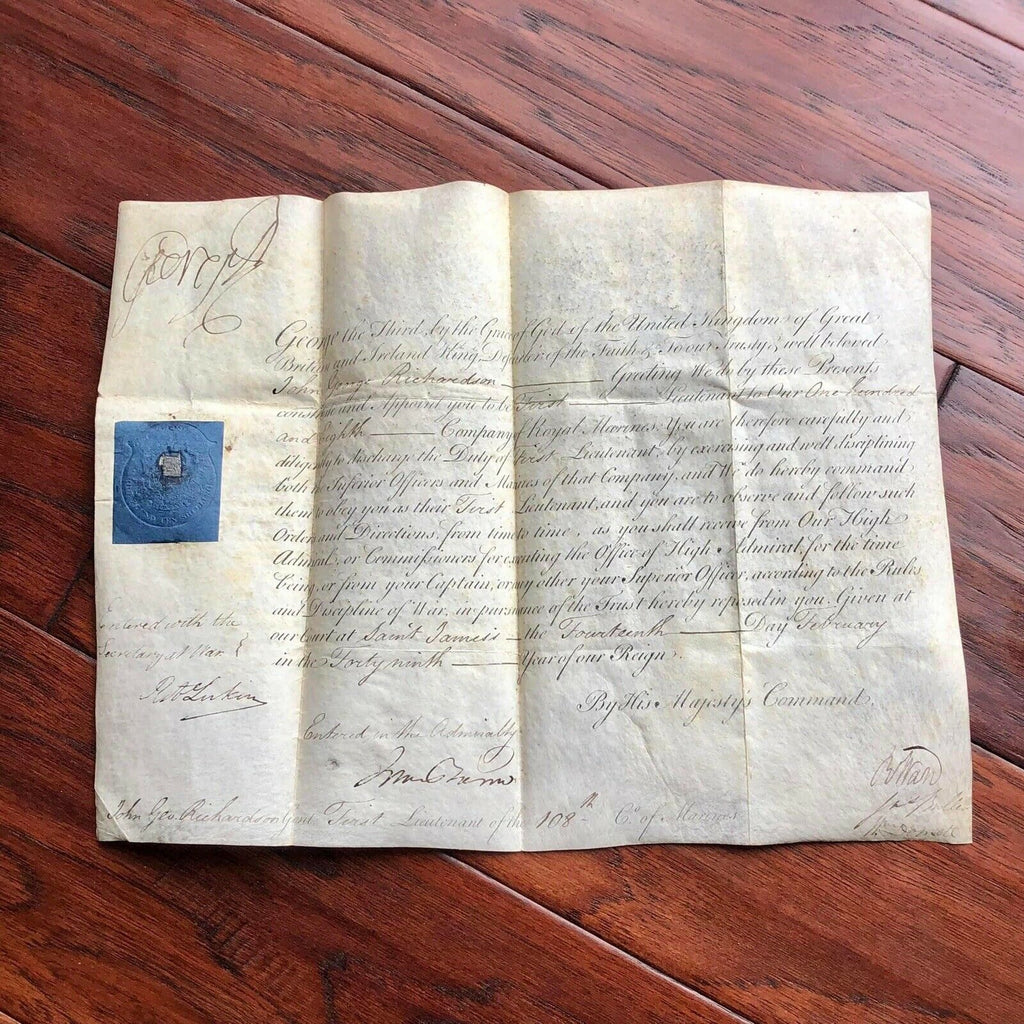 George R
George the Third, by the Grace of God, of the United Kingdom, of Great
Britain and Ireland King, Defender of the Faith & To our Trusty, & well beloved
John George Richardson Greeting We do by these Presents
constitute and Appoint you to be First Lieutenant to Our One hundred
and Eighth Company of Royal Marines. You are therefore carefully and
diligently to discharge the Duty of First Lieutenant, by exercising and well disciplining
both the Inferior Officers and Marines of that Company, and We do hereby command
them to obey you as their First Lieutenant, and you are to observe and follow such
Orders and Directions, from time to time, as you shall receive from Our High
Admiral, or Commissioners for executing the Office of High Admiral, for the time
being, or from your Captain, or any other your Superior Officer, according to the Rules
and Discipline of War, in pursuance of the Trust hereby reposed in you. Given at
our Court at Saint James's the Fourteenth Day February
in the Forty ninth Year of our Reign.
By His Majesty's Command,
Entered with the
Secretary at War
Lukin
Entered in the Admiralty
John Geo. Richardson Gent First Lieutenant of the 108th Co. of Marines